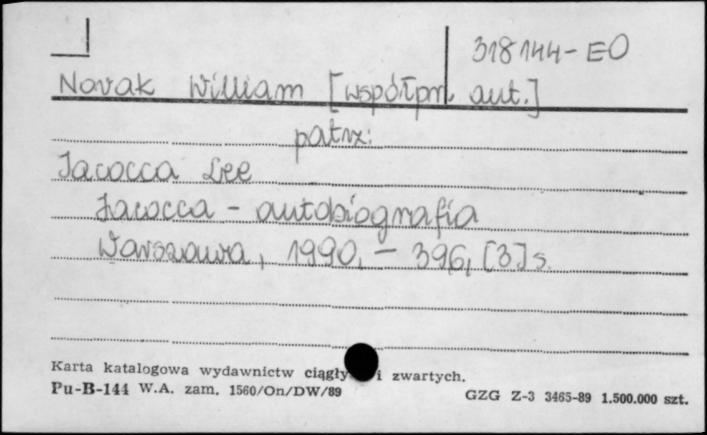 318144-EO
Novak William [współpr. aut.]
patrz:
Iacocca Lee
Iacocca - autobiografia
Warszawa, 1990. - 396, [3] s.
Karta katalogowa wydawnictw ciągły i zwartych.
Pu-B-144 W.A. zam. 1560/On/DW/89
GZG Z-3 3465-89 1.500.000 szt.